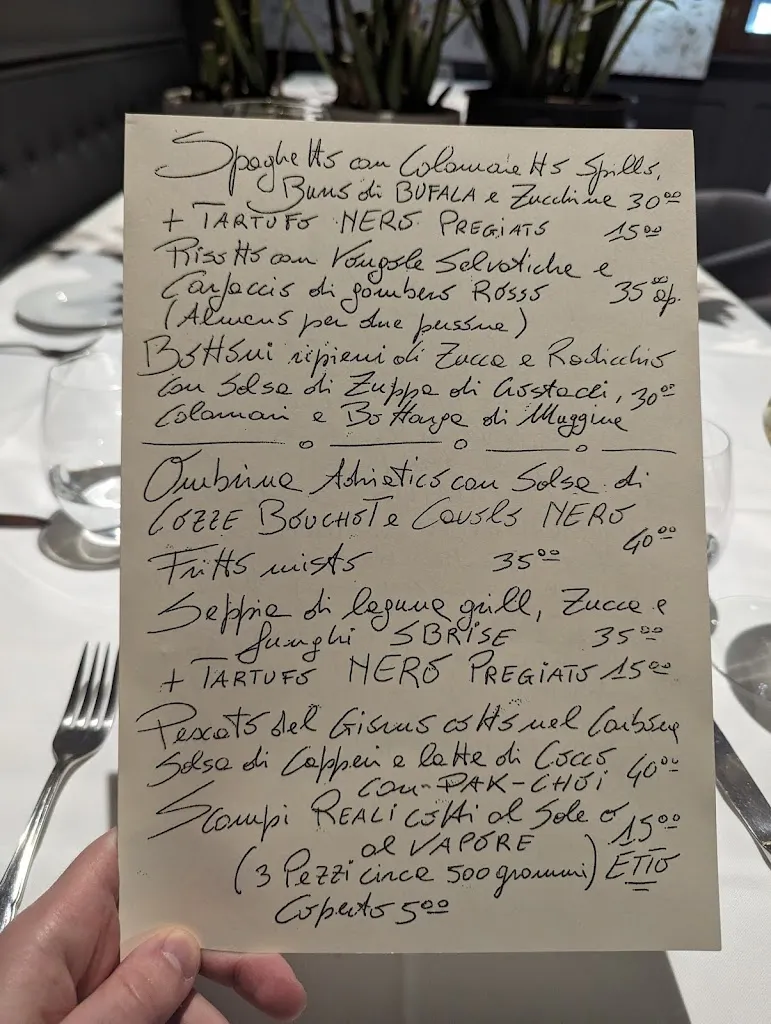 Spaghetto con Calamaretto Spillo,
Burro di BUFALA e Zucchine 30⁰⁰
+ TARTUFO NERO PREGIATO 15⁰⁰
Risotto con Vongole Selvatiche e
Carpaccio di gambero Rosso 35⁰⁰ ap.
(Almeno per due persone)
Bottoni ripieni di Zucca e Radicchio
con Salsa di Zuppa di Crostacei, 30⁰⁰
Calamari e Bottarga di Muggine
Ombrina Adriatico con Salsa di
COZZE BOUCHOT e Cavolo NERO
40⁰⁰
Fritto misto 35⁰⁰
Seppia di laguna grill, Zucca e
funghi SBRISE 35⁰⁰
+ TARTUFO NERO PREGIATO 15⁰⁰
Pescato del Giorno cotto nel Carbone
Salsa di Capperi e latte di Cocco 40⁰⁰
con PAK-CHOI
Scampi REALI cotti al Sale o 15⁰⁰
al VAPORE
(3 Pezzi circa 500 grammi) ETTO
Coperto 5⁰⁰